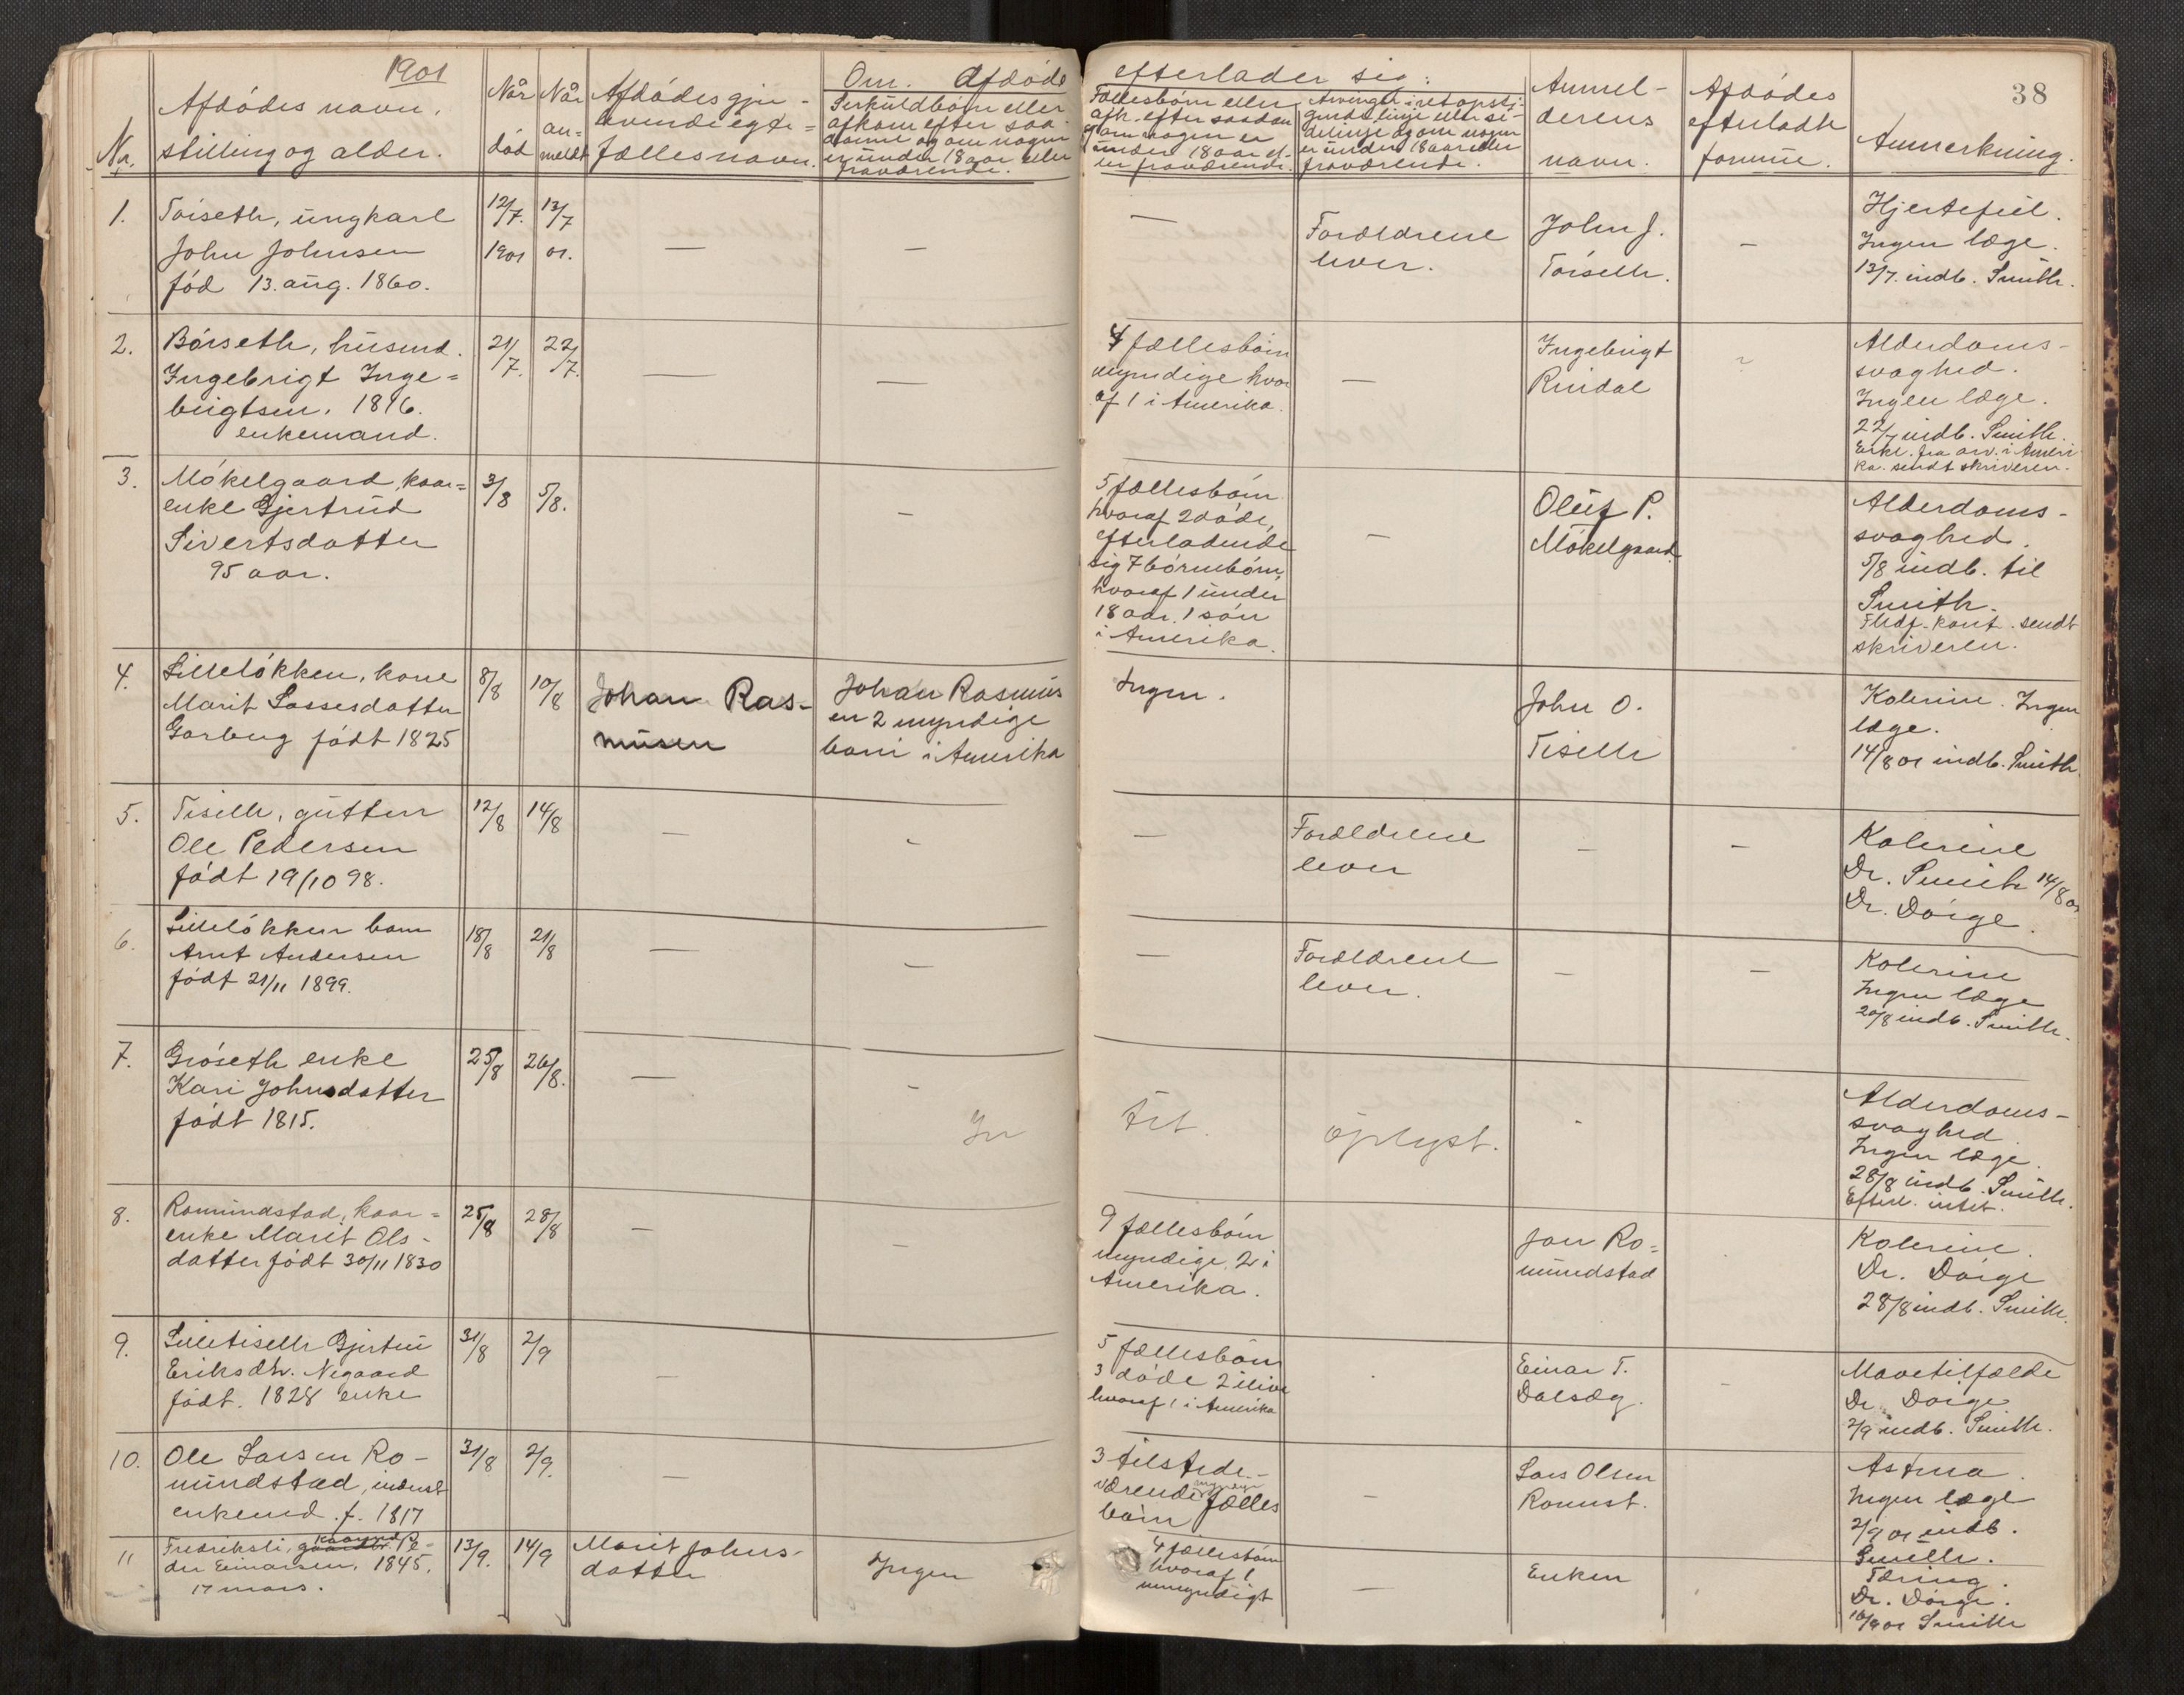 1901
38
No.
Afdödes navn,
stilling og alder.
Når
död
Når
an-
meldt
Afdödes gjen-
levende egte=
fællesnavn.
Om Afdöde
Særkuldbörn eller
afkom efter saa-
danne og om nogen
er under 18 aar eller
fraværende.
efterlader sig:
Fællesbörn eller
afk. efter saadan
og om nogen er
under 18 aar el-
ler fraværende.
Arvinger i ret opsti-
gende linje eller si-
delinje og om nogen
er under 18 aar eller
fraværende.
Anmel-
derens
navn.
Afdödes
efterladte
formue.
Anmerkning.
1.
Töiseth, ungkarl
John Johnsen
född 13. aug. 1860.
12/7.
1901
13/7
01.
—
—
—
Forældrene
lever.
John J.
Töiseth.
—
Hjertefeil.
Ingen læge.
13/7. indb. Smith.
2.
Börseth, husmd.
Ingebrigt Inge=
brigtsen. 1816.
enkemand.
21/7.
22/7.
—
—
4 fællesbörn
myndige hvor
af 1 i Amerika.
—
Ingebrigt
Rindal
Alderdoms-
svaghed.
Ingen læge.
22/7 indb. Smith.
Erkl. fra arv. i Ameri
ka. sendt skriveren.
3.
Mökelgaard, kaar=
enke Gjertrud
Sivertsdatter
95 aar.
3/8
5/8.
—
5 fællesbörn
hvoraf 2 döde,
efterladende
sig 7 börnebörn,
hvoraf 1 under
18 aar. 1 sön
i Amerika.
—
Oluf P.
Mökelgaard.
Alderdoms-
svaghed.
5/8 indb. til
Smith.
sendt
skriveren.
4.
Lillelökken, kone
Marit Lassesdatter
Garberg födt 1825
8/8
10/8
Johan Ras-
musen
Johan Rasmus
en 2 myndige
barn i Amerika
Ingen.
John O.
Tiseth
Kolerine. Ingen
læge.
14/8 01 indb. Smith.
5.
Tiseth, gutten
Ole Pedersen
födt 19/10 98.
12/8
14/8
—
-
—
Forældrene
lever
—
—
Kolerine
Dr. Smith 14/8 01
Dr. Dörge.
6.
Lillelökken barn
Arnt Andersen
födt 21/11 1899.
18/8
21/8
—
—
—
Forældrene
lever.
—
—
Kolerine
Ingen læge
20/8 indb. Smith.
7.
Gröseth enke
Kari Johnsdatter
födt 1815.
25/8
26/8.
—
-
In
tet
oplyst.
Alderdoms-
svaghed.
Ingen læge.
28/8 indb. Smith.
Efterl. intet.
8.
Romundstad, kaar=
enke Marit Ols-
datter födt 30/11 1830
25/8
28/8
—
—
9 fællesbörn
myndige. 2 i
Amerika.
Jon Ro=
mundstad
Kolerine.
Dr. Dörge
28/8 indb. Smith.
9.
Lilletiseth Gjertru
Eriksdtr. Negaard
födt. 1828 enke
31/8
2/9
—
5 fællesbörn
3 döde 2 i live
hvoraf 1 i Amerika
Einar T.
Dalsæg.
—
Mavetilfælde
Dr. Dörge
2/9 indb. Smith.
10.
Ole Larsen Ro-
mundstad, inderst
enkemd. f. 1817
31/8
2/9.
—
3 tilstede-
værende myndige fælles
börn
—
Lars Olsen
Romust.
Astma.
Ingen læge
2/9 01 indb.
Smith.
11
Fredriksli, kaarmd Pe-
der Einarsen. 1845.
17 mars.
13/9.
14/9
Marit Johns-
datter
Ingen
4 fællesbörn
hvoraf 1
umyndigt
—
Enken
Tæring.
Dr. Dörge.
16/9 01 Smith